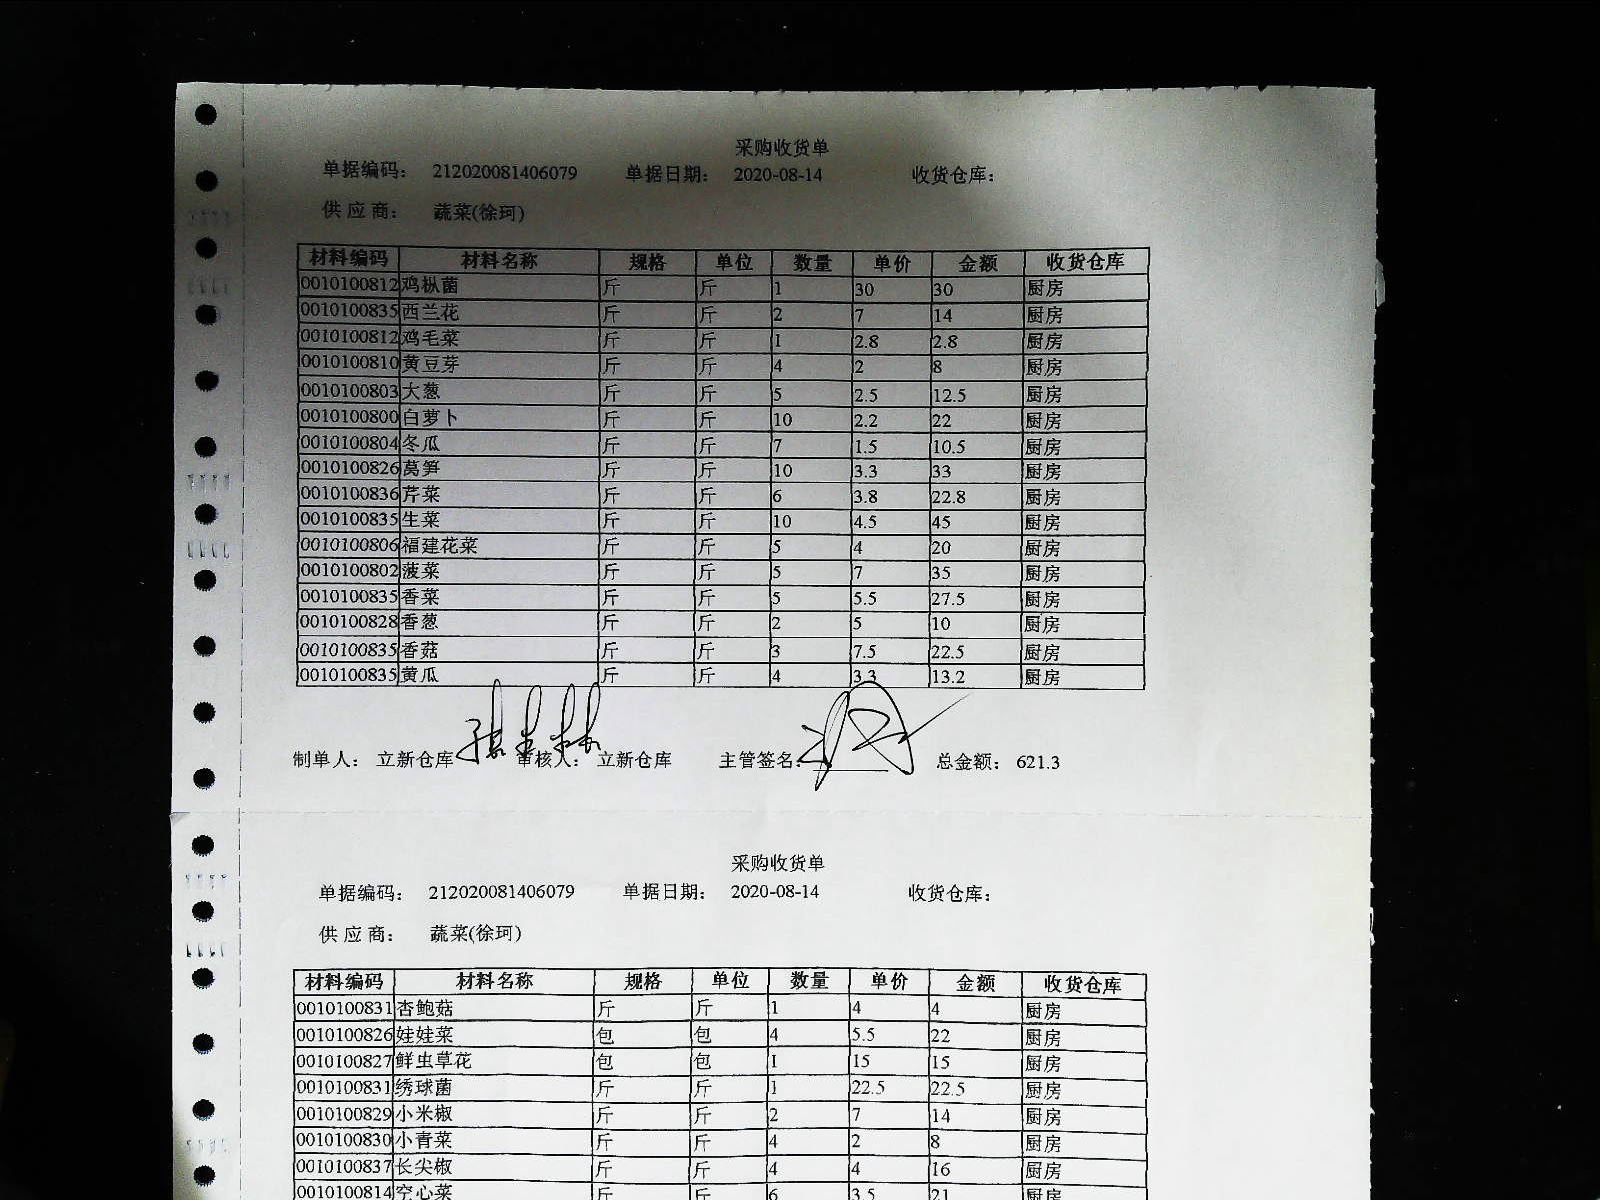 采购收货单
单据编码： 212020081406079 单据日期： 2020-08-14 收货仓库：
供 应 商： 蔬菜(徐珂)
材料编码 材料名称 规格 单位 数量 单价 金额 收货仓库
0010100812 鸡枞菌 斤 斤 1 30 30 厨房
0010100835 西兰花 斤 斤 2 7 14 厨房
0010100812 鸡毛菜 斤 斤 1 2.8 2.8 厨房
0010100810 黄豆芽 斤 斤 4 2 8 厨房
0010100803 大葱 斤 斤 5 2.5 12.5 厨房
0010100800 白萝卜 斤 斤 10 2.2 22 厨房
0010100804 冬瓜 斤 斤 7 1.5 10.5 厨房
0010100826 莴笋 斤 斤 10 3.3 33 厨房
0010100836 芹菜 斤 斤 6 3.8 22.8 厨房
0010100835 生菜 斤 斤 10 4.5 45 厨房
0010100806 福建花菜 斤 斤 5 4 20 厨房
0010100802 菠菜 斤 斤 5 7 35 厨房
0010100835 香菜 斤 斤 5 5.5 27.5 厨房
0010100828 香葱 斤 斤 2 5 10 厨房
0010100835 香菇 斤 斤 3 7.5 22.5 厨房
0010100835 黄瓜 斤 斤 4 3.3 13.2 厨房
制单人： 立新仓库 审核人： 立新仓库 主管签名： 总金额： 621.3
采购收货单
单据编码： 212020081406079 单据日期： 2020-08-14 收货仓库：
供 应 商： 蔬菜(徐珂)
材料编码 材料名称 规格 单位 数量 单价 金额 收货仓库
0010100831 杏鲍菇 斤 斤 1 4 4 厨房
0010100826 娃娃菜 包 包 4 5.5 22 厨房
0010100827 鲜虫草花 包 包 1 15 15 厨房
0010100831 绣球菌 斤 斤 1 22.5 22.5 厨房
0010100829 小米椒 斤 斤 2 7 14 厨房
0010100830 小青菜 斤 斤 4 2 8 厨房
0010100837 长尖椒 斤 斤 4 4 16 厨房
0010100814 空心菜 斤 斤 6 3.5 21 厨房